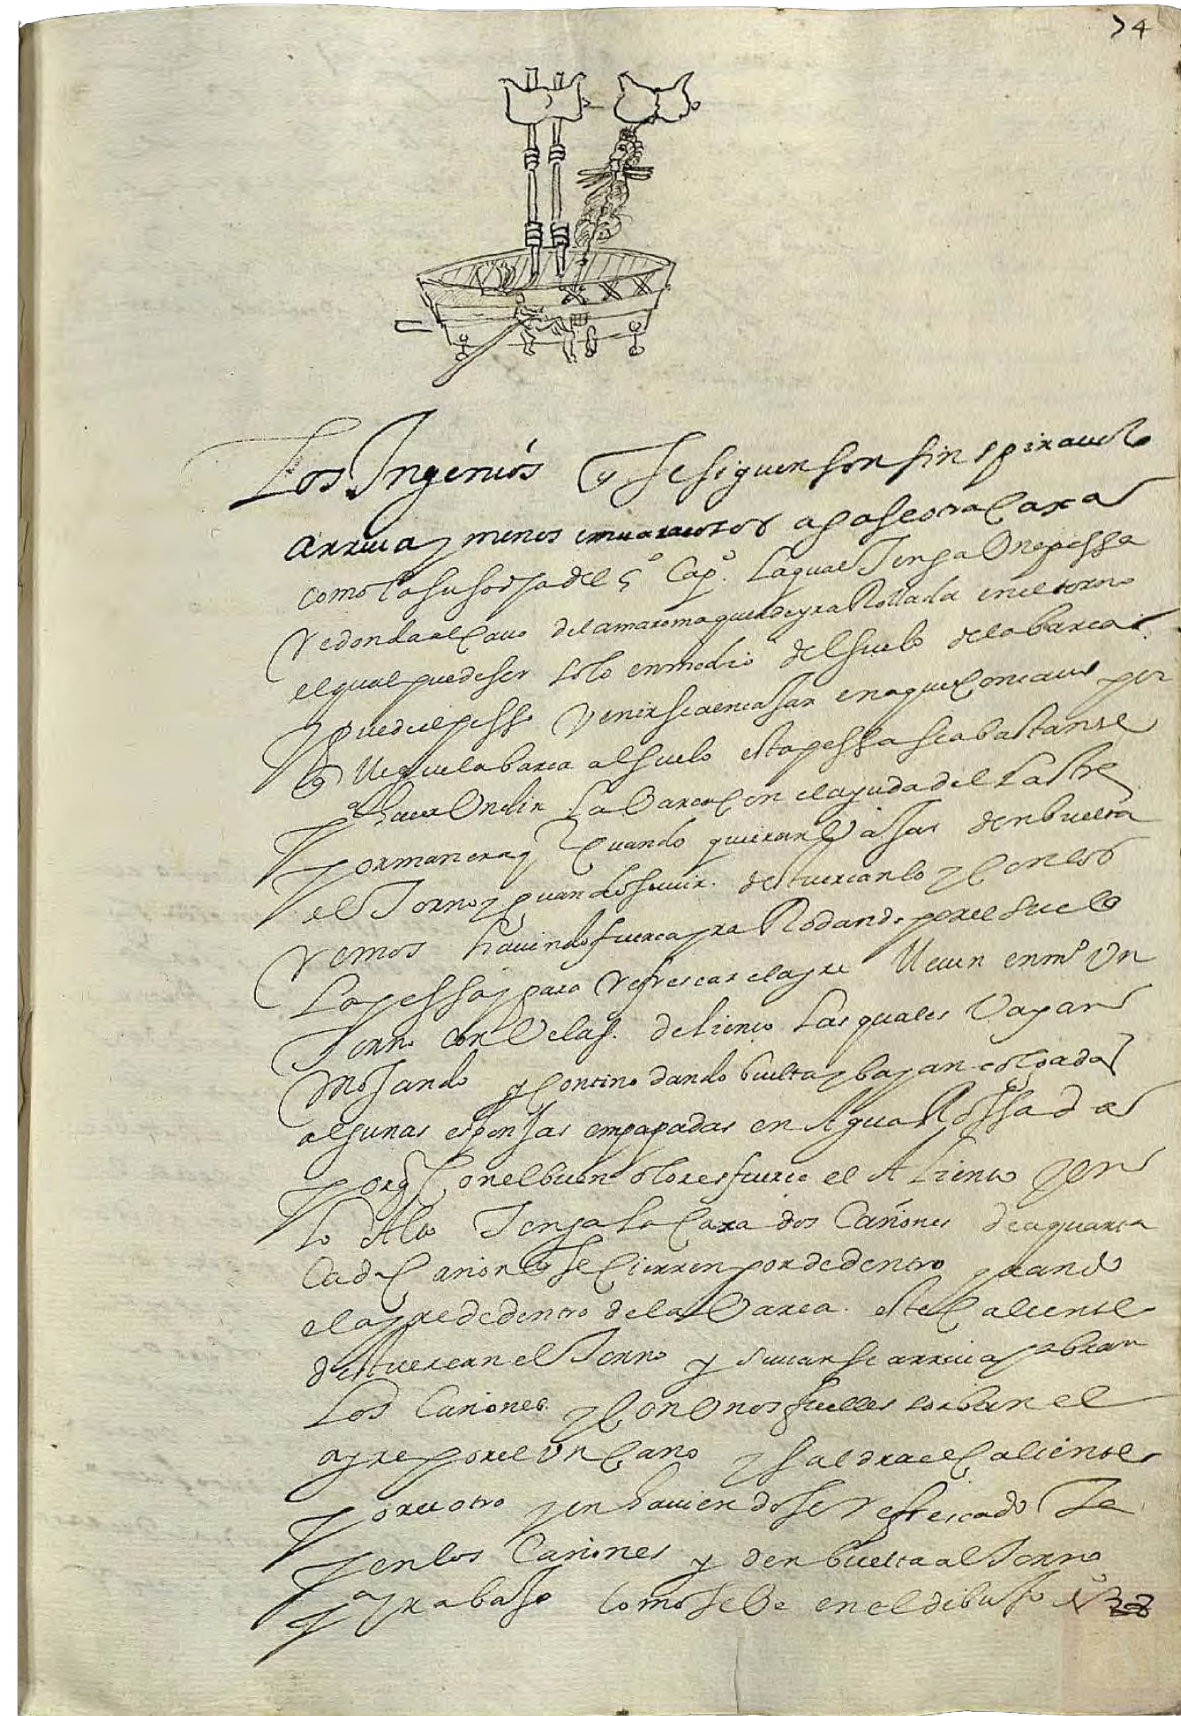 74
Los Ingenios q se siguen son sin spiraculo
arriua y menos enuaraçosos agasse otra Caxa
como la susodha del 5º Capº. la qual tenga Una pessa
redonda al Cauo de la maroma que dçira Rollada en el torno
el qual puede ser solo en medio del suelo de la barca
y puede el pesso venirse a encasar en aquel concauo por
q llegue la barca al suelo esta pessa sea bastante
a hacer Undir la barca Con el ayuda del lastre
por manera q Quando quieran Vajar den buelta
el Torno y quando suuir. destuerçanlo y Con los
remos haciendo fuerça yra Rodando por el suelo
La pessa y para refrescar el ayre lleuen en mº Un
Torno con Velas. de lienço las quales Vayan
Mojando y Contino dando bueltas y bayan colgadas
algunas esponjas empapadas en Agua Rossada
porq Con el buen olor esfuerce el Aliento y en
lo Alto Tenga la Caxa dos Cañones de a quarta
Cada Cañon q se Cierren por de dentro quando
el ayre de dentro de la Barca. este Caliente
destuercen el Torno y suuanse arriua y abran
Los Cañones. y Con Unos fuelles sorban el
ayre por el Un Cano y saldra el Caliente
por el otro y en hauiendose refrescado Ta
pen los Cañones y den buelta al Torno
y a trabajo como se Ve en el dibujo Nº